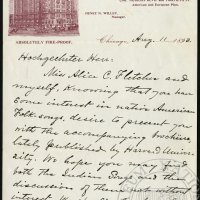 American and European Plan.
HENRY N. WILLEY,
Manager.
ABSOLUTELY FIRE-PROOF.
Chicago, Aug. 11 1893
Hochgeehrter Herr:
Miss Alice C. Fletcher and
myself, knowing that you have
some interest in native American
Folk songs, desire to present you
with the accompanying brochure,
lately published by Harvard Univer-
sity. We hope you may find
both the Indian Songs and the
discussion of them not without
interest.